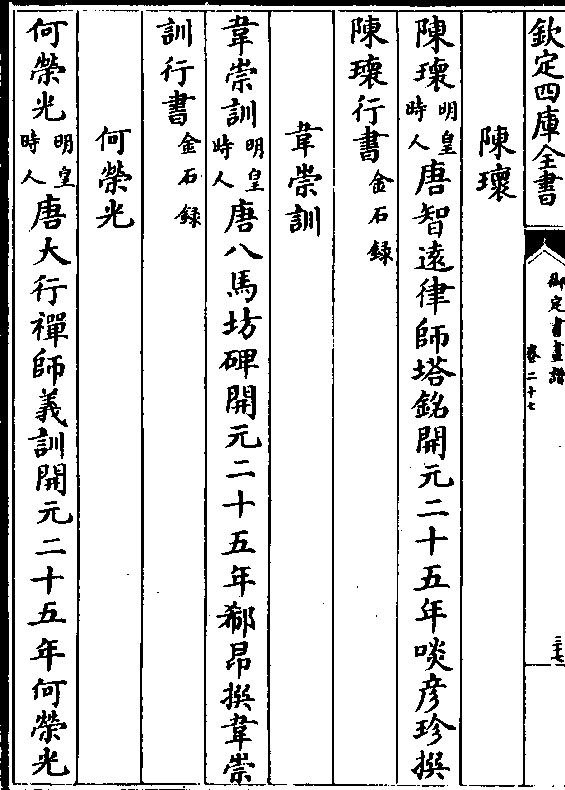 欽定四庫全書
御定書畫譜
卷二十七
三七
陳瓌
陳瓌明皇時人唐智遠律師塔銘開元二十五年啖彥珍撰
陳瓌行書金石錄
韋崇訓
韋崇訓明皇時人唐八馬坊碑開元二十五年郗昂撰韋崇
訓行書金石錄
何榮光
何榮光明皇時人唐大行禪師義訓開元二十五年何榮光